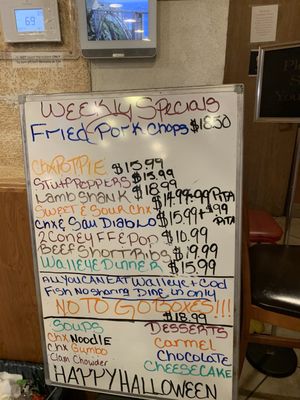 69
WEEKLY SPECIALS
FRIED PORK CHOPS $18.50
CHX POT PIE $15.99
STUFF PEPPERS $15.99
LAMB SHANK $18.99
SWEET & SOUR CHX $14.99
CHX & SAN DIABLO $15.99 +
2 CONEY FF E POP $10.99
BEEF SHORT RIBS $19.99
WALLEYE DINNER $15.99
ALL YOU CAN EAT WALLEYE + COD
FISH NO SHARING DINE IN ONLY
NO TO GO BOXES!!!
$18.99
SOUPS
CHX NOODLE
CHX GUMBO
Clam Chowder
DESSERTS
CARMEL
CHOCOLATE
CHEESECAKE
HAPPY HALLOWEEN